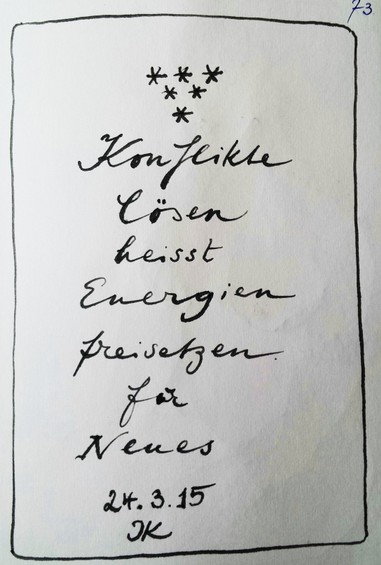 73
* * *
* *
*
Konflikte
lösen
heisst
Energien
freisetzen
für
Neues
24.3.15
JK